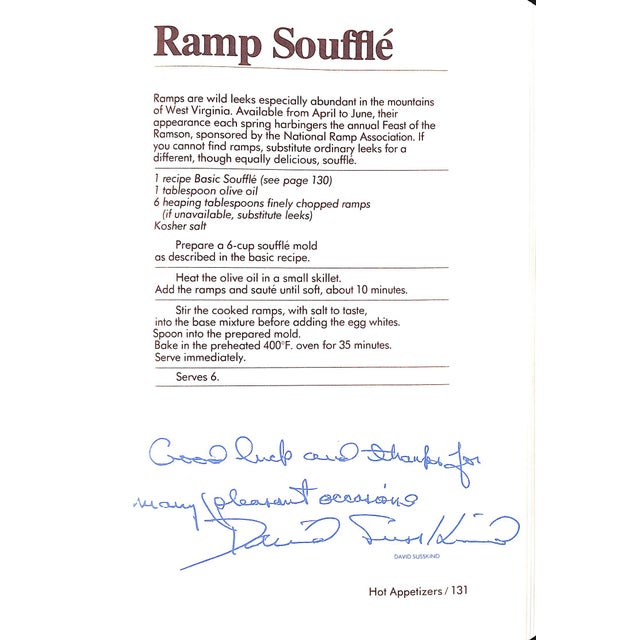 Ramp Soufflé
Ramps are wild leeks especially abundant in the mountains
of West Virginia. Available from April to June, their
appearance each spring harbingers the annual Feast of the
Ramson, sponsored by the National Ramp Association. If
you cannot find ramps, substitute ordinary leeks for a
different, though equally delicious, soufflé.
1 recipe Basic Soufflé (see page 130)
1 tablespoon olive oil
6 heaping tablespoons finely chopped ramps
(if unavailable, substitute leeks)
Kosher salt
Prepare a 6-cup soufflé mold
as described in the basic recipe.
Heat the olive oil in a small skillet.
Add the ramps and sauté until soft, about 10 minutes.
Stir the cooked ramps, with salt to taste,
into the base mixture before adding the egg whites.
Spoon into the prepared mold.
Bake in the preheated 400°F. oven for 35 minutes.
Serve immediately.
Serves 6.
Good luck and thanks for
many pleasant occasions
David Susskind
DAVID SUSSKIND
Hot Appetizers / 131